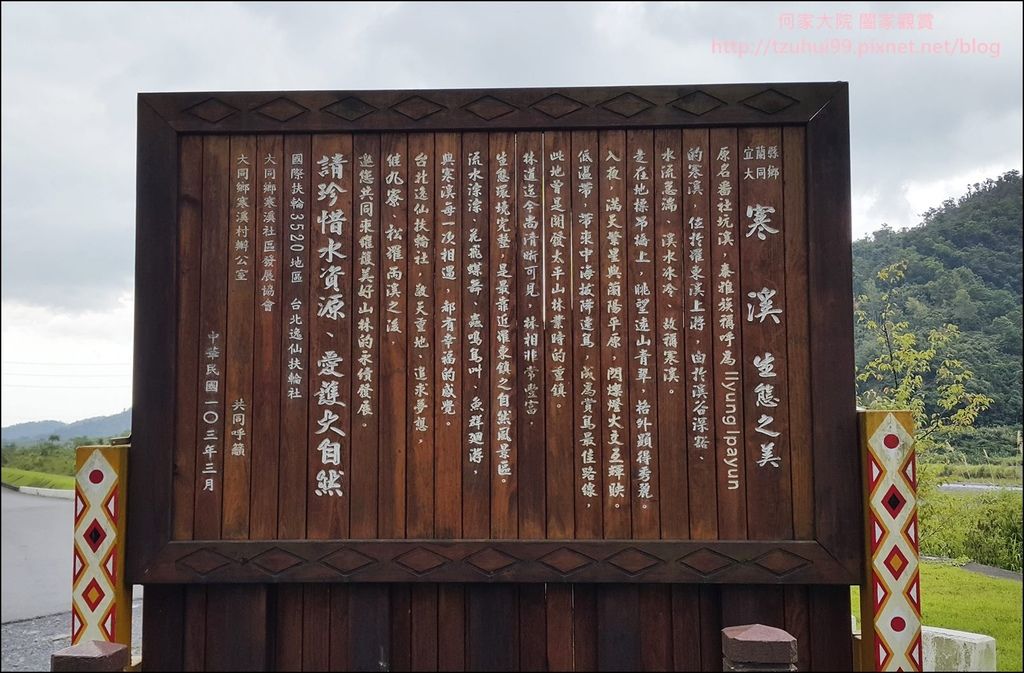 何家大院 闔家觀賞
http://tzuhui99.pixnet.net/blog
宜蘭縣
大同鄉
寒溪 生態之美
原名番社坑溪，泰雅族稱呼為 llyung lpayun
的寒溪，位於羅東溪上游，由於溪谷深豁、
水流急湍，溪水冰冷，故稱寒溪。
走在地標吊橋上，眺望遠山青翠，格外顯得秀麗。
入夜，滿天繁星與蘭陽平原，閃爍燈火交互輝映。
低溫帶，帶來中海拔降遷鳥，成為賞鳥最佳路線，
此地曾是開發太平山林業時的重鎮。
林道迄今尚清晰可見，林相非常豐富，
生態環境完整，是最靠近羅東鎮之自然風景區。
流水淙淙，花飛蝶舞、蟲鳴鳥叫、魚群迴游，
與寒溪每一次相遇，都有幸福的感覺。
台北逸仙扶輪社，敬天重地、追求夢想，
繼九寮、松羅兩溪之後，
邀您共同來維護美好山林的永續發展。
請珍惜水資源、愛護大自然
國際扶輪3520地區 台北逸仙扶輪社
大同鄉寒溪社區發展協會
大同鄉寒溪村辦公室
共同呼籲
中華民國一〇三年三月